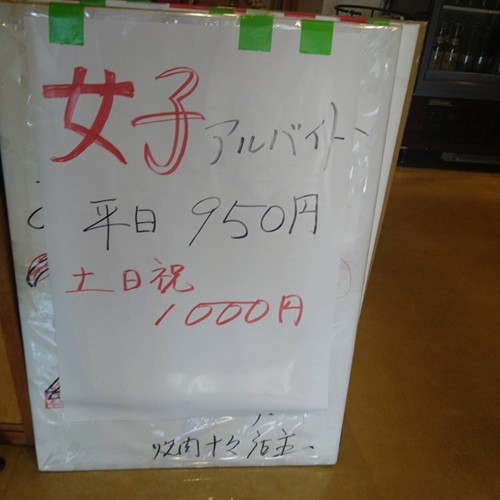 女子アルバイト
平日 950円
土日祝
1000円
焼肉十々店主